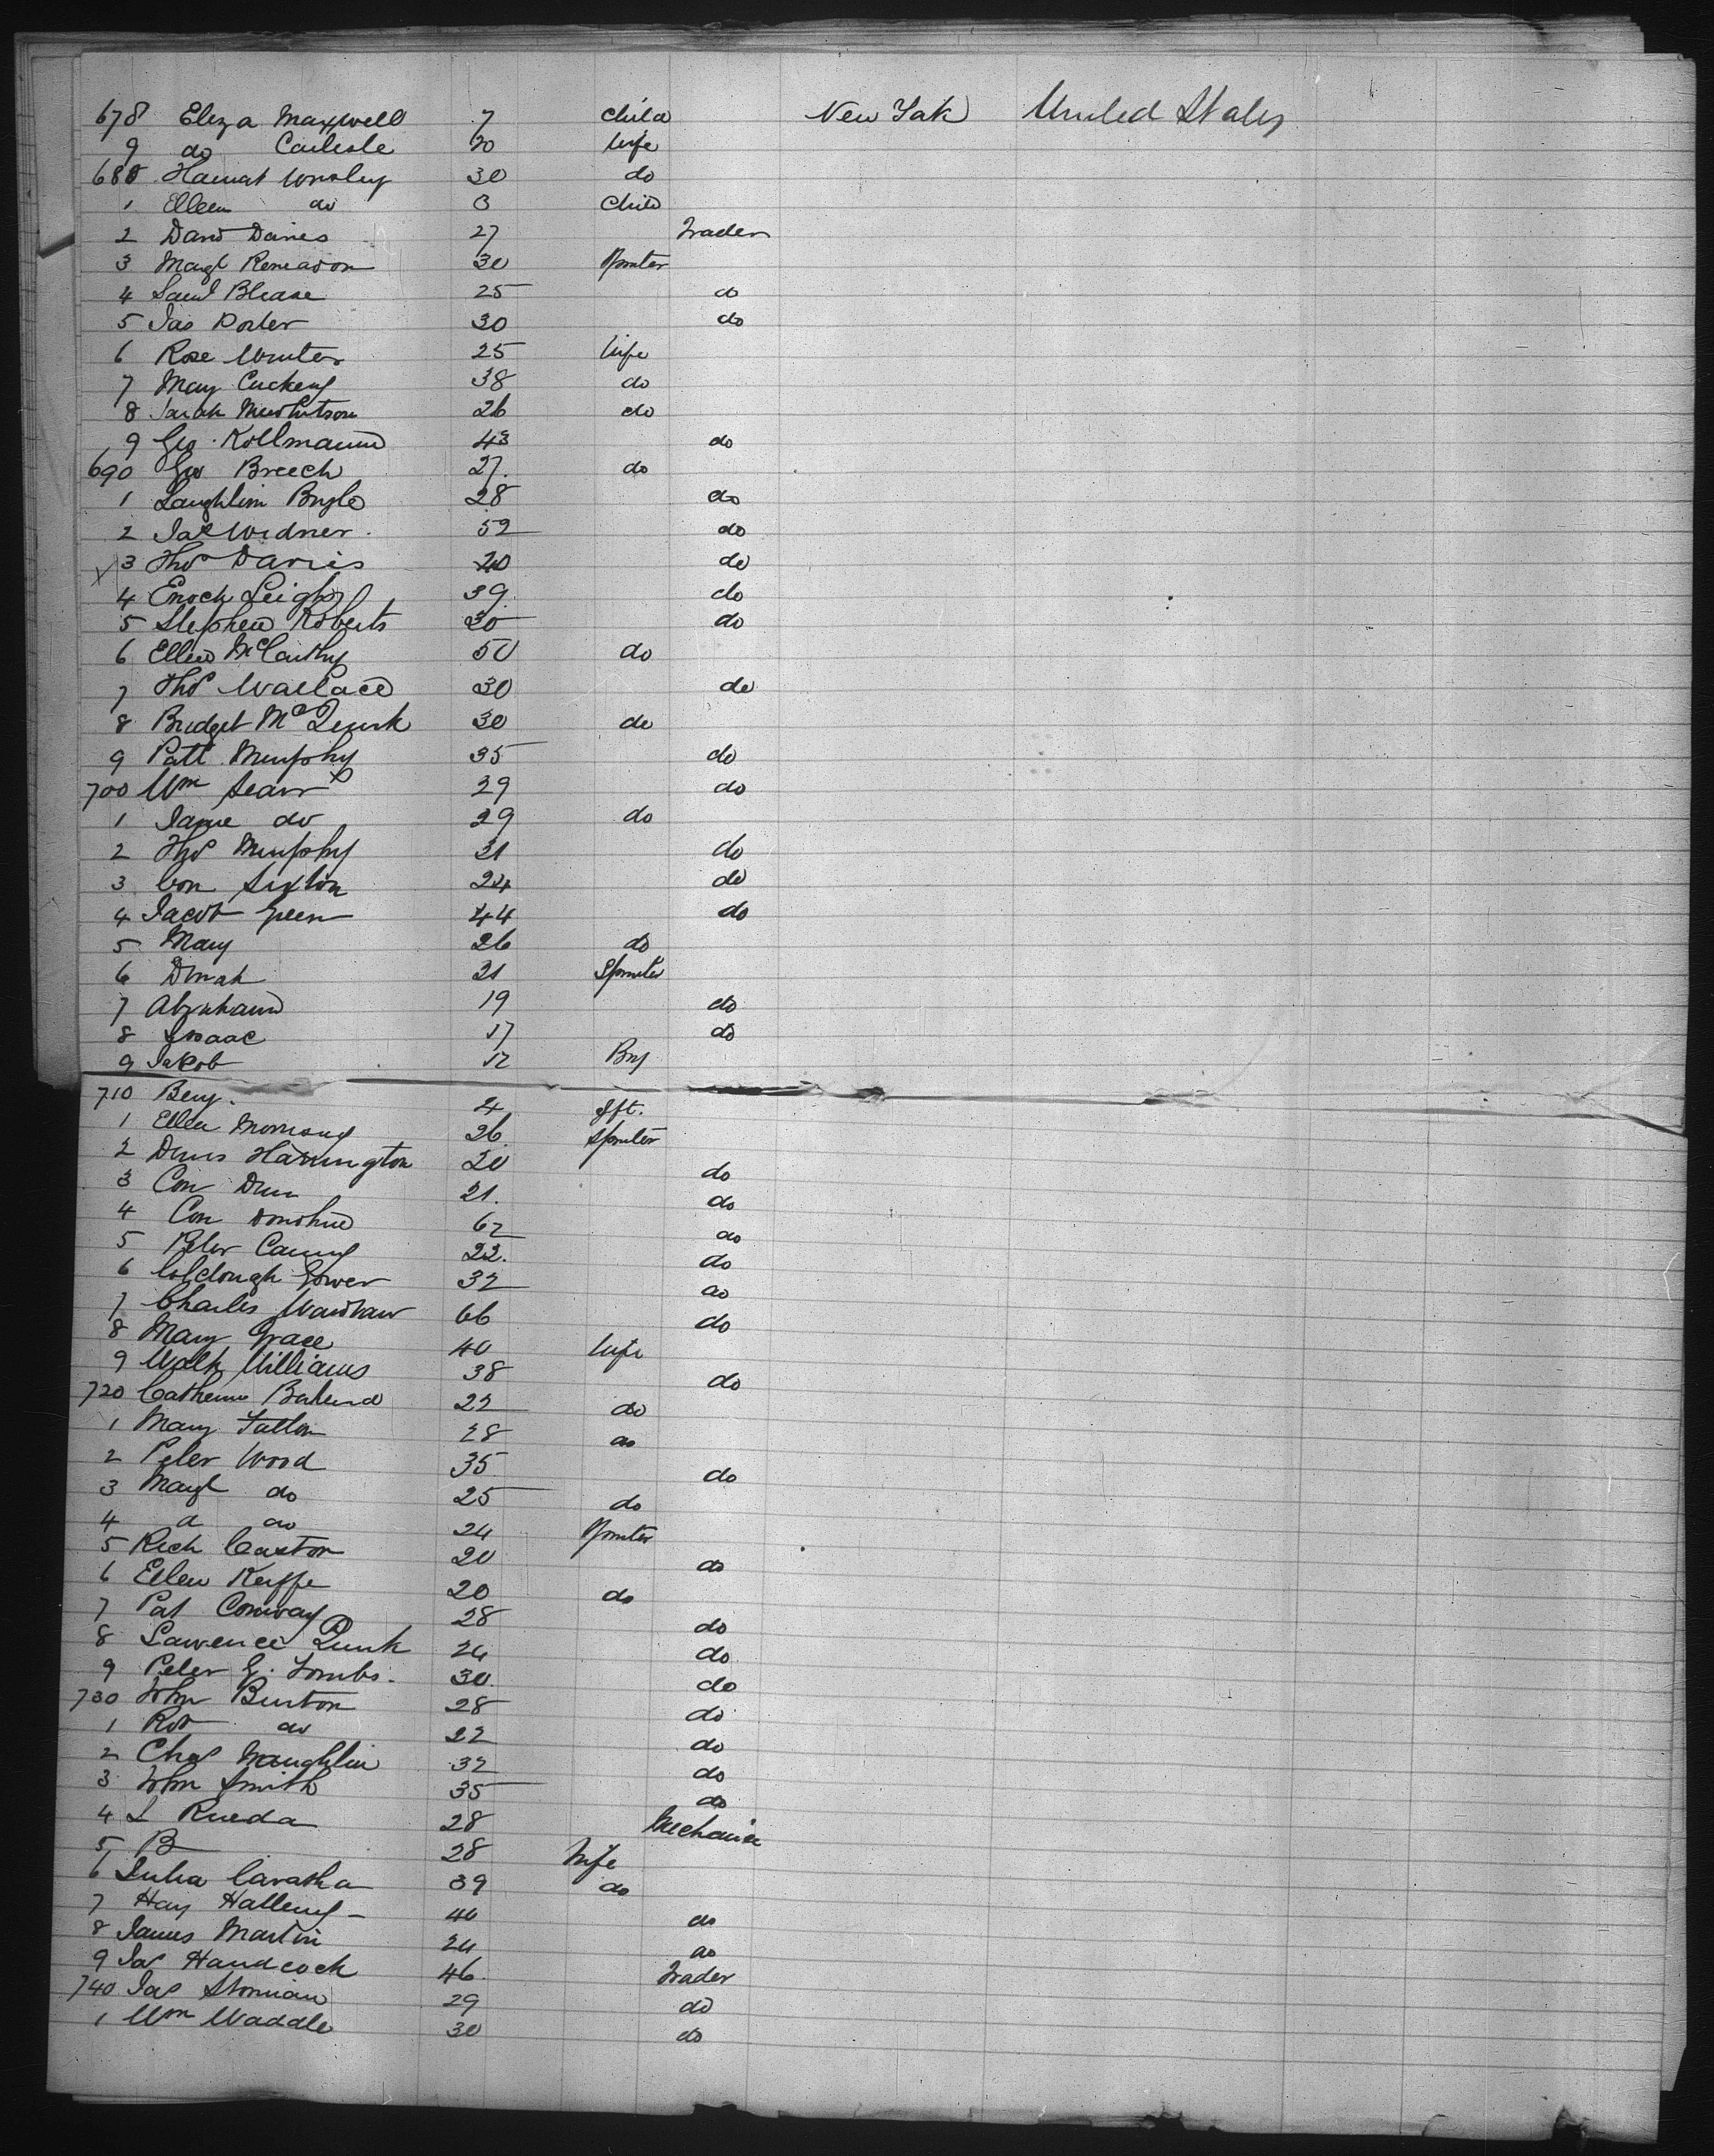 678 Eliza Maxwell 7 Child New York United States
9 do Carlisle 20 Wife
680 30 do
1 Ellen do 3 Child
2 David Davies 27 Trader
3 Magt 30 Spinster
4 Saml Blease 25 do
5 Jas Porter 30 do
6 Rose Winter 25 Wife
7 Mary 38 do
8 Sarah 26 do
9 Geo. Kollmann 43 do
690 Geo Breech 27. do
1 Laughlin 28 do
2 Jas Widner 52 do
3 Thos Davies 20 do
4 Enoch Leigh 39. do
5 Stephen Roberts 20 do
6 Ellen McCarthy 50 do
7 Thos Wallace 30 do
8 Bridget McQuirk 30 do
9 Patk Murphy 35 do
700 Wm Sears 29 do
1 Jane do 29 do
2 Thos Murphy 21 do
3 Con Sexton 24 do
4 Jacob Green 44 do
5 Mary 26 do
6 Dinah 21 Spinster
7 Abraham 19 do
8 Isaac 17 do
9 Jakob 12 Boy
710 Benj. 4 Ift.
1 Ellen Morrissey 26. Spinster
2 Denis Harrington 20 do
3 Con Dunn 21. do
4 Con Donohue 62 do
5 Peter 22. do
6 Colclough Gower 32 do
7 Charles Wardlaw 66 do
8 Mary Grace 40 Wife
9 Walt Williams 38 do
720 Catherine 22 do
1 Mary Fallon 28 do
2 Peter Wood 35 do
3 Magt do 25 do
4 do 24 Spinster
5 Rich Caxton 20 do
6 Ellen Keiffe 20 do
7 Pat Conway 28 do
8 Lawrence Quirk 24 do
9 Peter G. Tombs. 30. do
730 John Burton 28 do
1 Rob do 22 do
2 Chas Naughlin 32 do
3 John Smith 35 do
4 L Rueda 28 Mechanic
5 B 28 Wife
6 Julia 39 do
7 40 do
8 James Martin 24 do
9 Jas Handcock 46. Trader
740 Jas 29 do
1 Wm Waddle 30 do